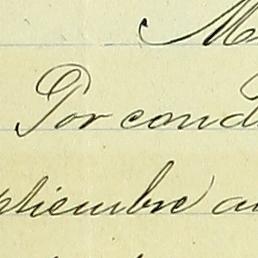 M
Por cond
ptiembre a